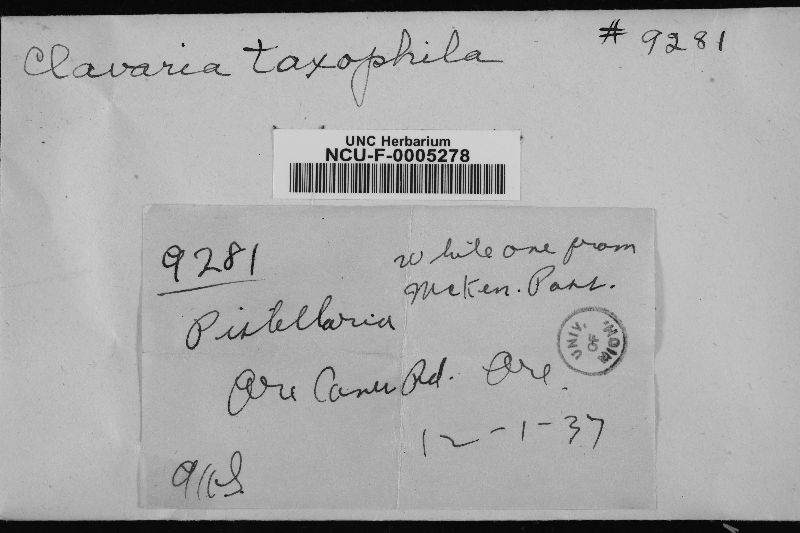 Clavaria taxophila # 9281
UNC Herbarium
NCU-F-0005278
9281
White one from
McKen. Pass.
Pistillaria
UNIV. OF MICH.
Ore Caves Rd. Ore.
12-1-37
AHS